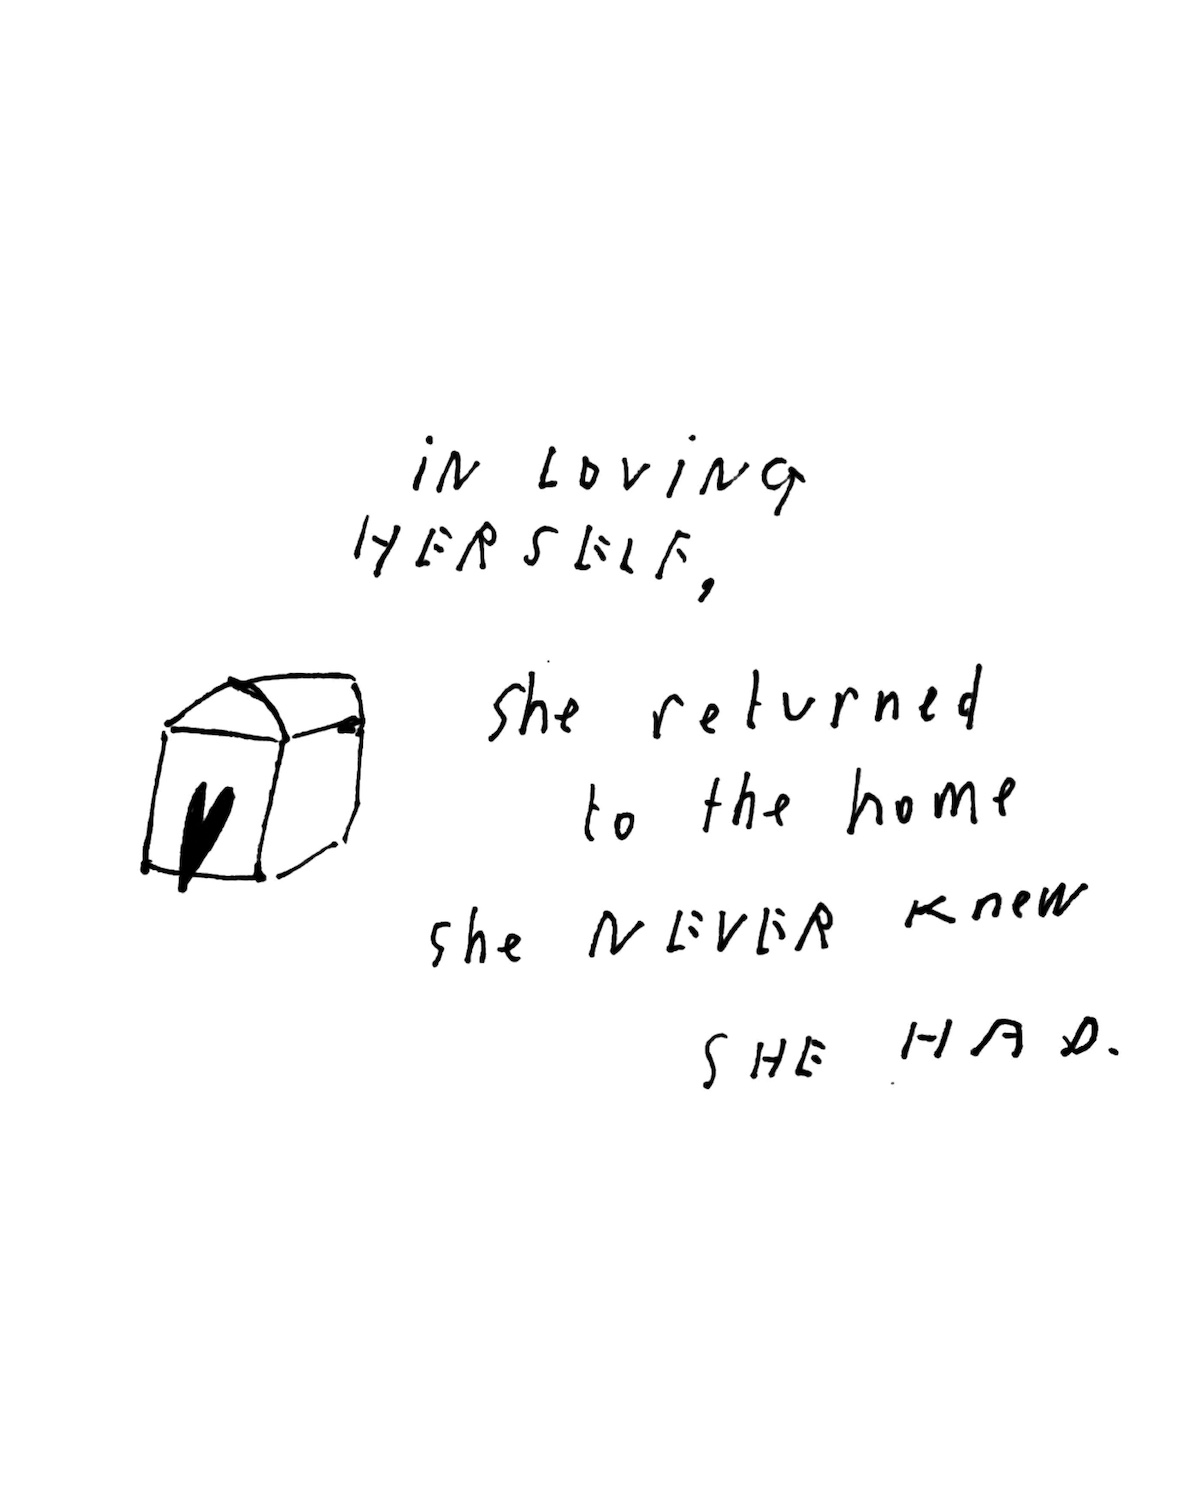 iN LOViNG
HERSELF,
she returned
to the home
she NEVER knew
SHE HAD.